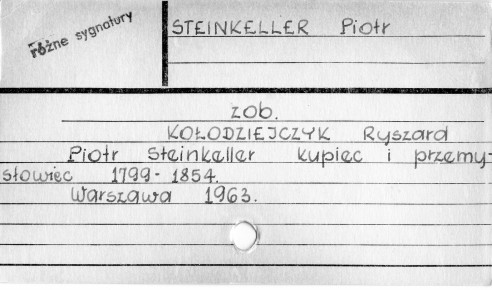 różne sygnatury
STEINKELLER Piotr
zob.
KOŁODZIEJCZYK Ryszard
Piotr Steinkeller kupiec i przemy-
słowiec 1799-1854.
Warszawa 1963.